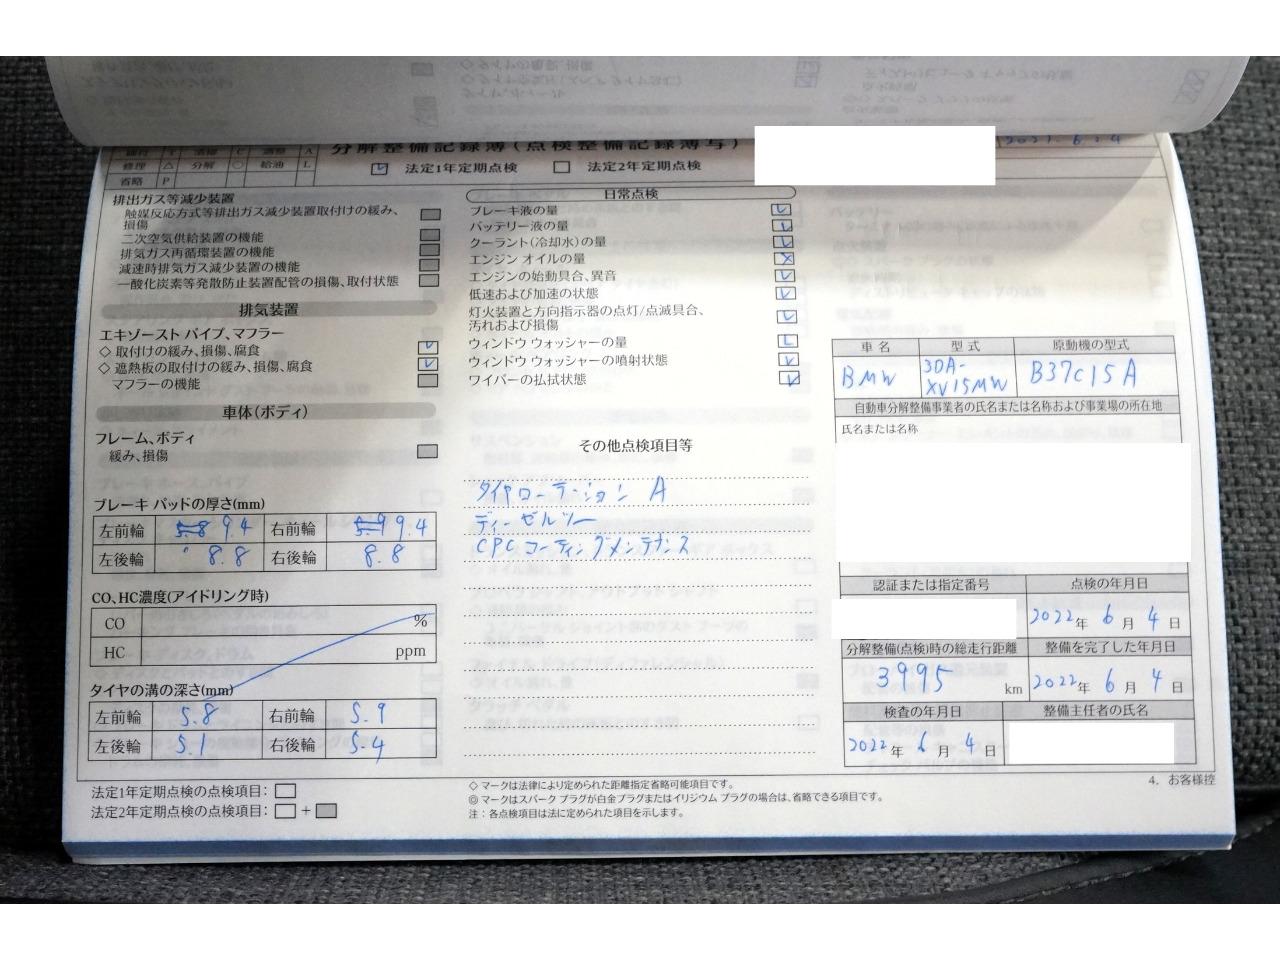 分解整備記録簿(点検整備記録簿写)
修理 △ 分解 ○ 給油 L
省略 P
法定1年定期点検 法定2年定期点検
排出ガス等減少装置
触媒反応方式等排出ガス減少装置取付けの緩み、
損傷
二次空気供給装置の機能
排気ガス再循環装置の機能
減速時排気ガス減少装置の機能
一酸化炭素等発散防止装置配管の損傷、取付状態
排気装置
エキゾースト パイプ、マフラー
◇ 取付けの緩み、損傷、腐食
◇ 遮熱板の取付けの緩み、損傷、腐食
マフラーの機能
車体(ボディ)
フレーム、ボディ
緩み、損傷
ブレーキ パッドの厚さ(mm)
左前輪 9.4 右前輪 9.4
左後輪 8.8 右後輪 8.8
CO、HC濃度(アイドリング時)
CO %
HC ppm
タイヤの溝の深さ(mm)
左前輪 5.8 右前輪 5.9
左後輪 5.1 右後輪 5.4
法定1年定期点検の点検項目:
法定2年定期点検の点検項目: +
日常点検
ブレーキ液の量
バッテリー液の量
クーラント(冷却水)の量
エンジン オイルの量
エンジンの始動具合、異音
低速および加速の状態
灯火装置と方向指示器の点灯/点滅具合、
汚れおよび損傷
ウィンドウ ウォッシャーの量
ウィンドウ ウォッシャーの噴射状態
ワイパーの払拭状態
その他点検項目等
タイヤローテーション A
ディーゼルツー
CPCコーティングメンテナンス
◇ マークは法律により定められた距離指定省略可能項目です。
◎ マークはスパーク プラグが白金プラグまたはイリジウム プラグの場合は、省略できる項目です。
注:各点検項目は法に定められた項目を示します。
車名 型式 原動機の型式
BMW 3DA-XV15MW B37C15A
自動車分解整備事業者の氏名または名称および事業場の所在地
氏名または名称
認証または指定番号 点検の年月日
2022年 6月 4日
分解整備(点検)時の総走行距離 整備を完了した年月日
3995 km 2022年 6月 4日
検査の年月日 整備主任者の氏名
2022年 6月 4日
4. お客様控